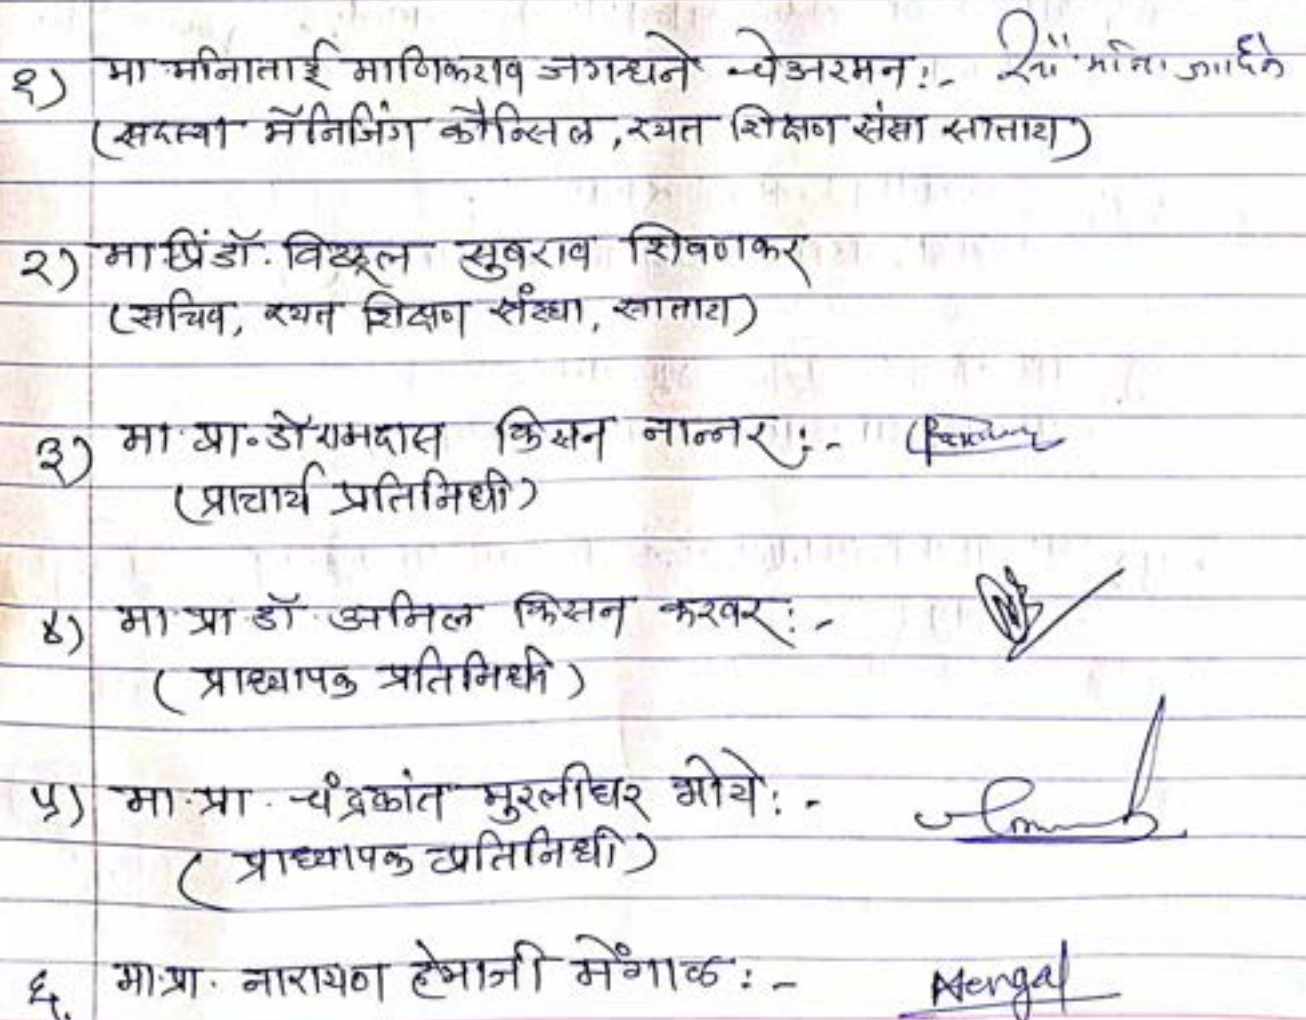 १) मा.मीनाताई माणिकराव जगधने चेअरमन:- सौ मीना जगधने
(सदस्या मॅनेजिंग कौन्सिल, रयत शिक्षण संस्था सातारा)
२) मा.प्रिं.डॉ. विठ्ठल सुबराव शिवणकर
(सचिव, रयत शिक्षण संस्था, सातारा)
३) मा.प्रा.डॉ रामदास किसन नान्नर:-
(प्राचार्य प्रतिनिधी)
४) मा प्रा डॉ. अनिल किसन करवर:-
(प्राध्यापक प्रतिनिधी)
५) मा.प्रा. चंद्रकांत मुरलीधर भोये:-
(प्राध्यापक प्रतिनिधी)
६. मा.प्रा. नारायण हेमाजी मेंगाळ:- Mengal